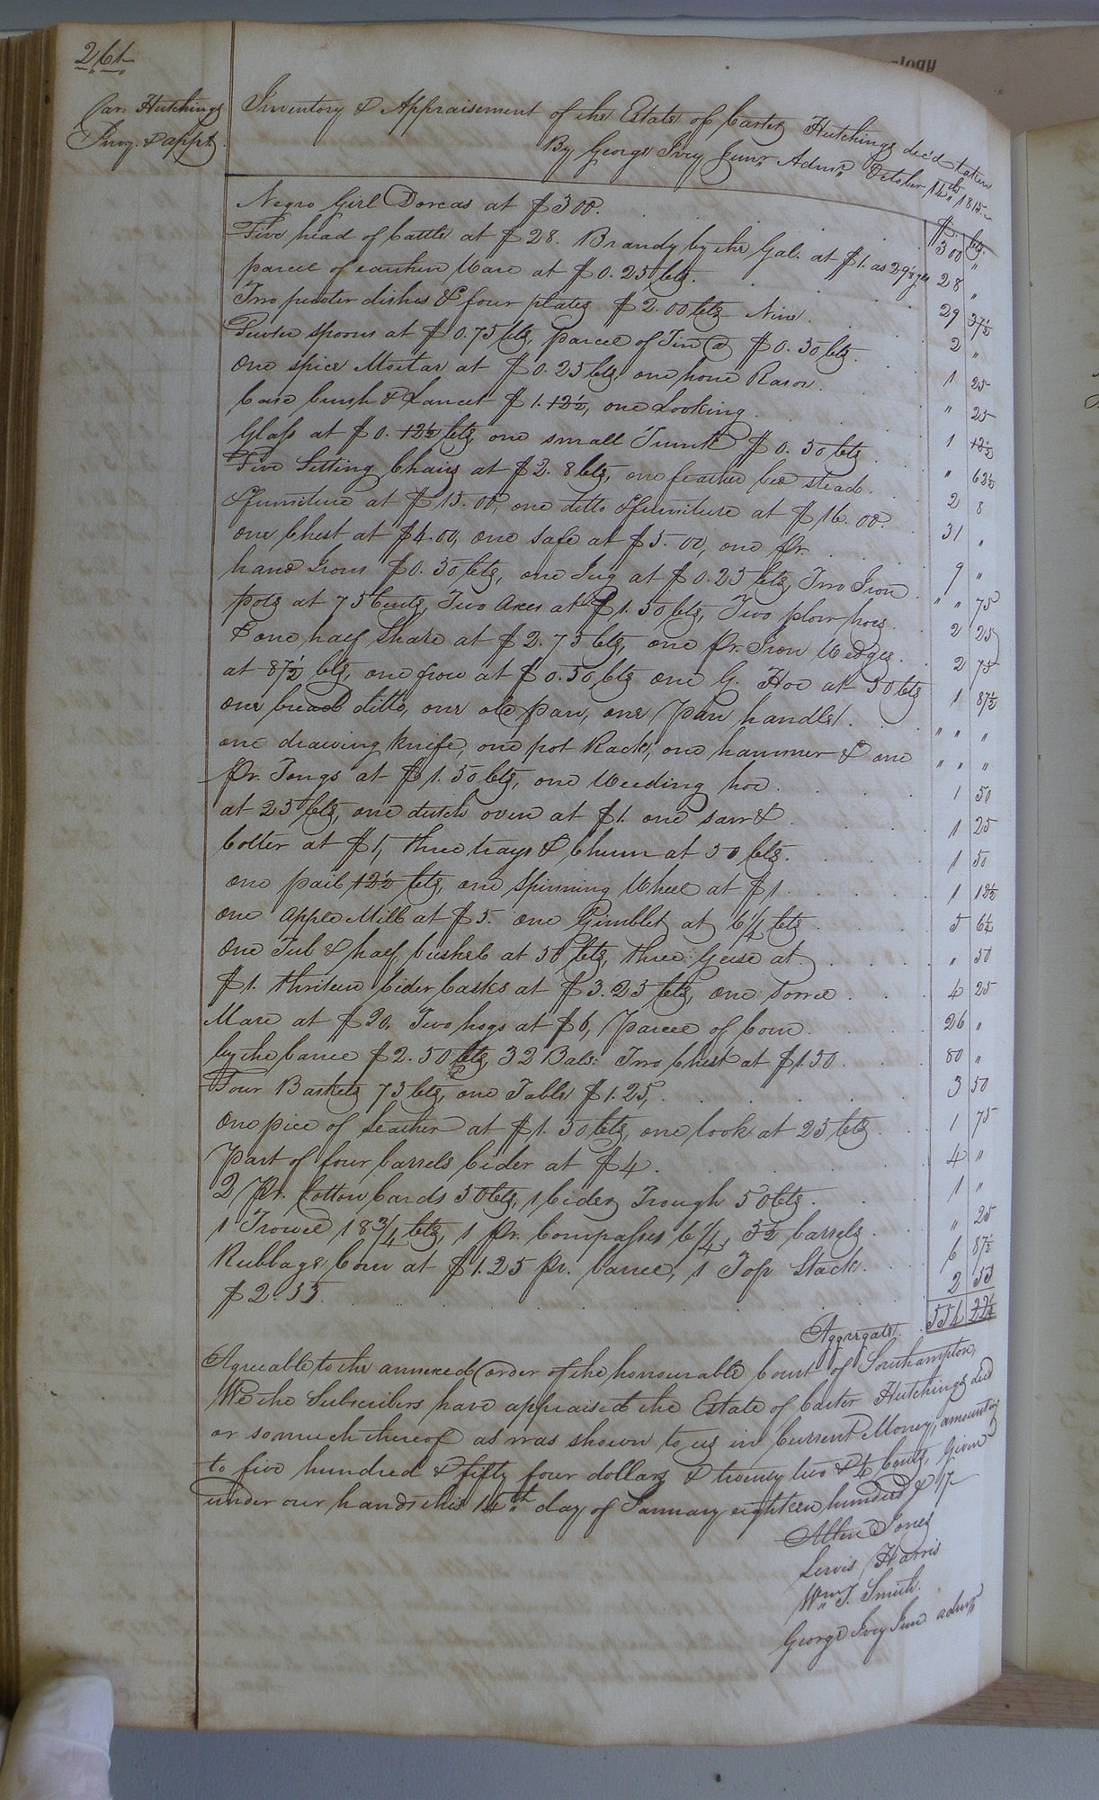 261
Car. Hutchings
Invy. & appt.
Inventory & Appraisement of the Estate of Carter Hutchings dec'd taken
By George Ivey Junr. Admr. October 14th 1815
$ Cts.
Negro Girl Dorcas at $300. 300 "
Five head of Cattle at $28. Brandy by the Gal. at $1. as 29½ gls 28 "
parcel of earthen Ware at $0.25 Cts. 29 37½
Two pewter dishes & four plates $2.00 Cts Nine 2 "
Pewter spoons at $0.75 Cts, parcel of Tin @ $0.50 Cts 1 25
One spice Mortar at $0.25 Cts. one hone Rasor " 25
Case brush & Lancet $1.12½, one Looking 1 12½
Glass at $0.12½ Cts, one small Trunk $0.50 Cts " 62½
Five Setting Chairs at $2.8 Cts, one feather bed stead 2 8
& furniture at $15.00, one ditto & furniture at $16.00. 31 "
One Chest at $4.00, one safe at $5.00, one pr. 9 "
hand Irons $0.50 Cts, one Jug at $0.25 Cts, Two Iron " " 75
pots at 75 Cents, Two Axes at $1.50 Cts, Two plow hoes 2 25
& one half Share at $2.75 Cts, one pr. Iron Wedges 2 75
at 87½ Cts, one frow at $0.50 Cts one G. Hoe at 50 Cts 1 87½
one broad ditto, one old pan, one pan handle " " "
one drawing knife, one pot Rack, one hammer & one " " "
pr. Tongs at $1.50 Cts, one Weeding hoe 1 50
at 25 Cts, one dutch oven at $1. one saw & 1 25
Cotter at $1, three trays & Churn at 50 Cts. 1 50
one pail 12½ Cts, one Spinning Wheel at $1 1 12½
one Apple Mill at $5. one Gimblet at 6¼ Cts 5 6¼
One Tub & half bushel at 50 Cts, three Geese at " 50
$1. thirteen Cider Casks at $3.25 Cts, one Sorrel 4 25
Mare at $20, Two hogs at $6, Parcel of Corn 26 "
by the barrel $2.50 Cts, 32 Bals. Two Chest at $1.50 80 "
Four Baskets 75 Cts, one Table $1.25, 3 50
One piece of Leather at $1.50 Cts, one book at 25 Cts 1 75
Part of four barrels Cider at $4. 4 "
2 Pr. Cotton Cards 50 Cts, 1 Cider Trough 50 Cts 1 "
1 Trowel 18¾ Cts, 1 pr. Compasses 6¼, 5½ barrels " 25
Rubbage Corn at $1.25 pr. barrel, 1 Top Stack 6 87½
$2.55 2 55
Aggregate 554 22¼
Agreeable to the annexed order of the honourable Court of Southampton,
We the Subscribers have appraised the Estate of Carter Hutchings decd
or so much thereof as was shown to us in Current Money, amounting
to five hundred & fifty four dollars & twenty two & ¼ Cents, Given
under our hands this 14th day of January eighteen hundred & 17
Allen Jones
Lewis Harris
Wm. T. Smith.
George Ivey Junr admr